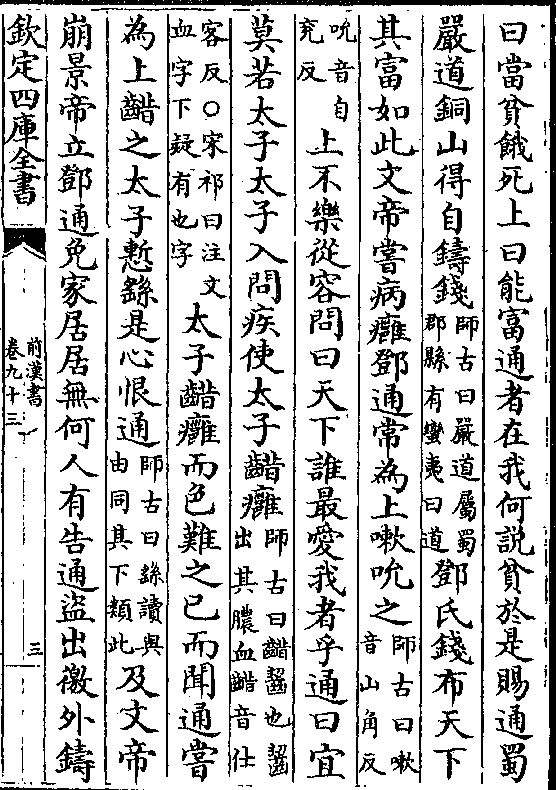 曰當貧餓死上曰能富通者在我何說貧於是賜通蜀
嚴道銅山得自鑄錢師古曰嚴道屬蜀郡縣有蠻夷曰道鄧氏錢布天下
其富如此文帝嘗病癰鄧通常為上嗽吮之師古曰嗽音山角反
吮音自兖反上不樂從容問曰天下誰最愛我者乎通曰宜
莫若太子太子入問疾使太子齰癰師古曰齰齧也齧出其膿血齰音仕
客反○宋祁曰注文血字下疑有也字太子齰癰而色難之已而聞通嘗
為上齰之太子慙繇是心恨通師古曰繇讀與由同其下類此及文帝
崩景帝立鄧通免家居居無何人有告通盜出徼外鑄
欽定四庫全書
前漢書
卷九十三
三